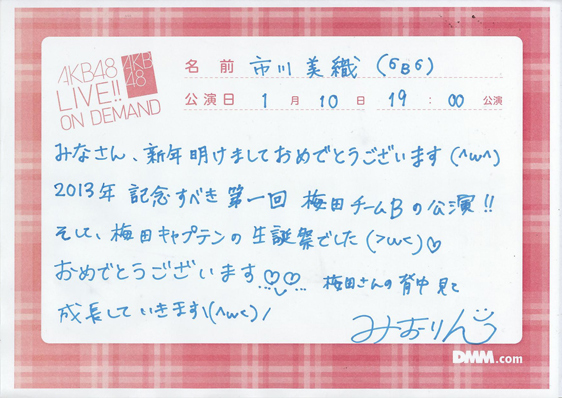 AKB48
LIVE!!
ON DEMAND
AKB
48
名前 市川美織 (6B6)
公演日 1月10日 19:00公演
みなさん、新年明けましておめでとうございます(^ω^)
2013年 記念すべき第一回 梅田チームBの公演!!
そして、梅田キャプテンの生誕祭でした(>ω<)♡
おめでとうございます 梅田さんの背中見て
成長していきます\(^ω<)/
みおりん
DMM.com